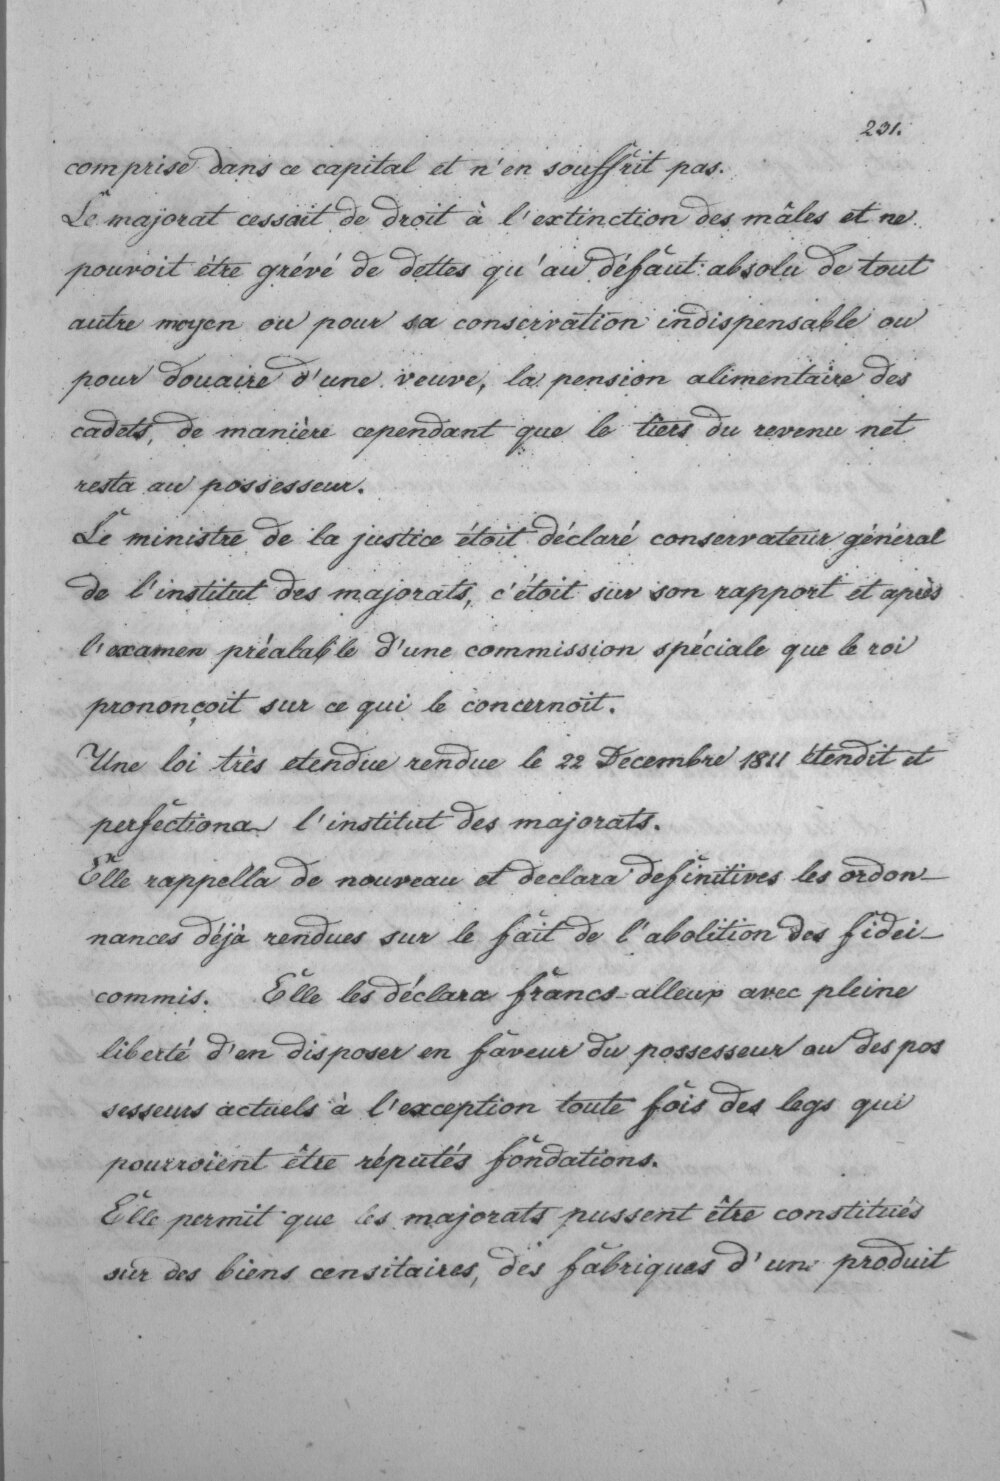 231.
comprise dans ce capital et n'en souffrit pas.
Le majorat cessait de droit à l'extinction des mâles et ne
pouvoit être grévé de dettes qu'au défaut absolu de tout
autre moyen ou pour sa conservation indispensable ou
pour douaire d'une veuve, la pension alimentaire des
cadets, de manière cependant que le tiers du revenu net
resta au possesseur.
Le ministre de la justice étoit déclaré conservateur général
de l'institut des majorats, c'étoit sur son rapport et après
l'examen préalable d'une commission spéciale que le roi
prononçoit sur ce qui le concernoit.
Une loi très etendue rendue le 22 Decembre 1811 étendit et
perfectiona l'institut des majorats.
Elle rappella de nouveau et declara definitives les ordon-
nances déjà rendues sur le fait de l'abolition des fidei-
commis. Elle les déclara francs-alleux avec pleine
liberté d'en disposer en faveur du possesseur ou des pos
sesseurs actuels à l'exception toute fois des legs qui
pourroient être réputés fondations.
Elle permit que les majorats pussent être constitués
sur des biens censitaires, des fabriques d'un produit